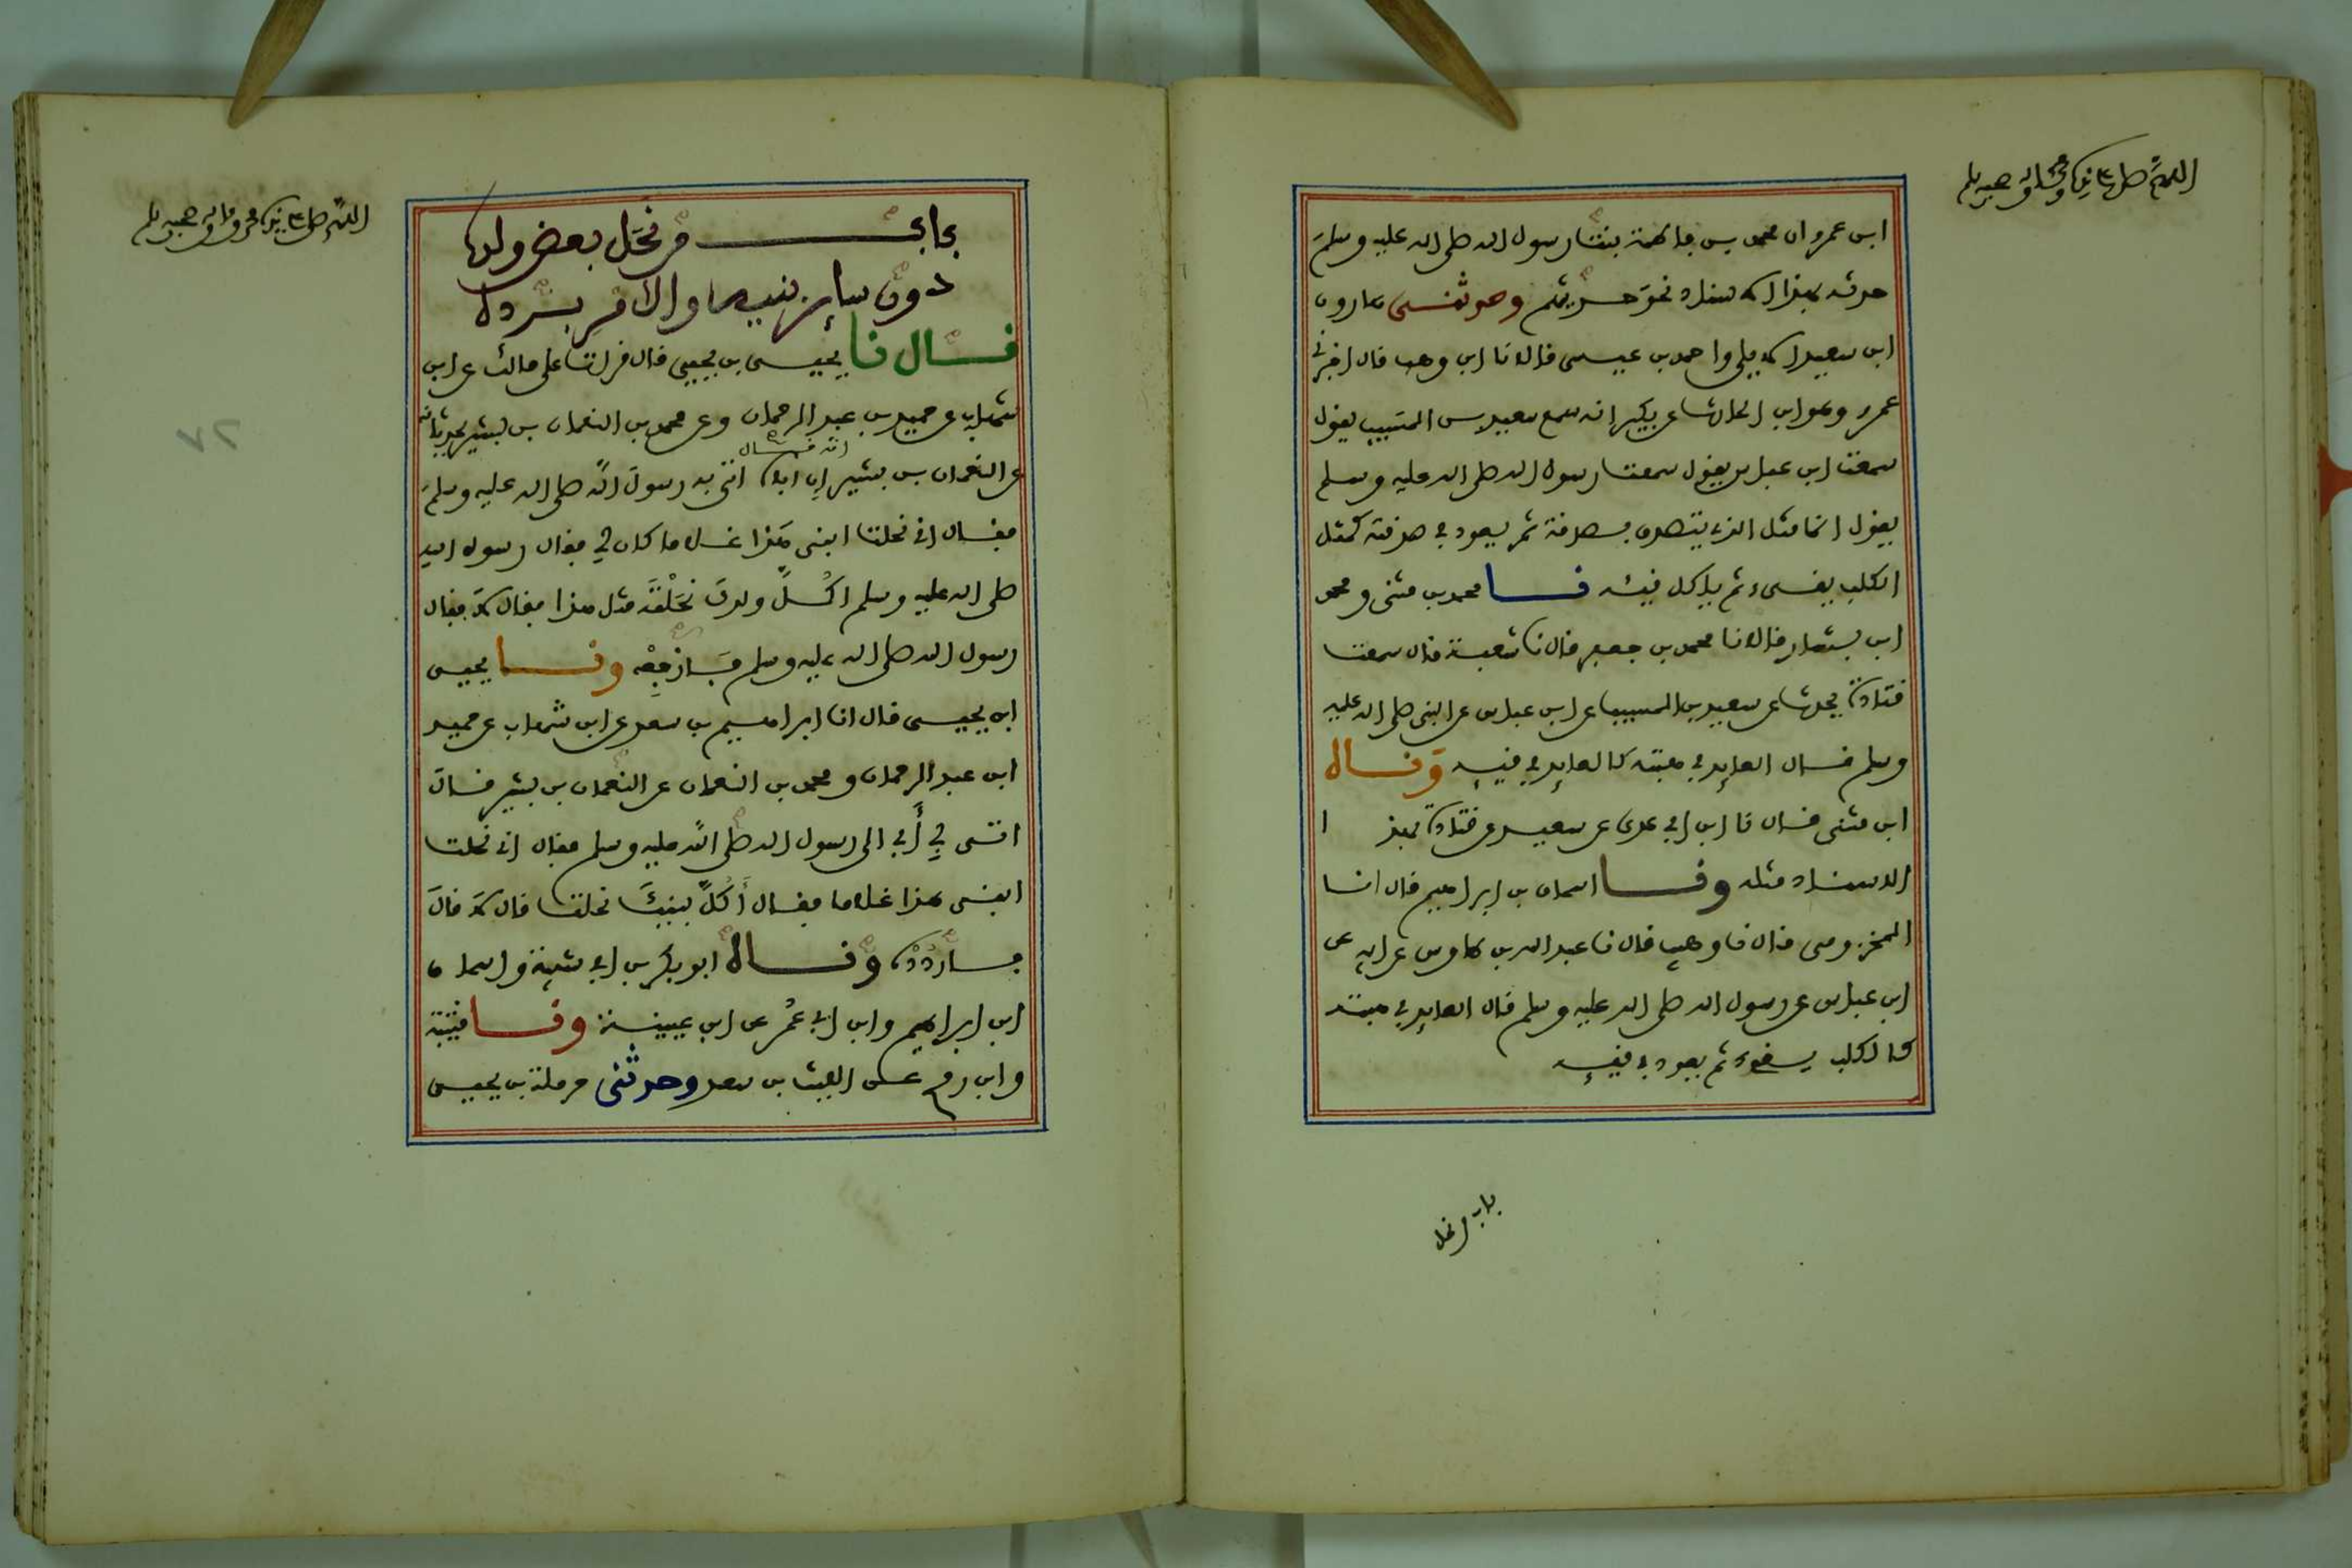 اللهم صل على نبيك محمد وآله وصحبه وسلم
ابن عمرو ان محمد بن فاطمة بنت رسول الله صلى الله عليه وسلم
حدثه بهذا الاسناد نحو حديثهم وحدثنى هارون
ابن سعيد الايلي واحمد بن عيسى قالا نا ابن وهب قال اخبرني
عمرو وهو ابن الحارث عن بكير انه سمع سعيد بن المسيب يقول
سمعت ابن عباس يقول سمعت رسول الله صلى الله عليه وسلم
يقول انما مثل الذي يتصدق بصدقة ثم يعود في صدقته كمثل
الكلب يقىء ثم ياكل قيئه نا محمد بن مثنى ومحمد
ابن بشار قالا نا محمد بن جعفر قال نا شعبة قال سمعت
قتادة يحدث عن سعيد بن المسيب عن ابن عباس عن النبي صلى الله عليه
وسلم قال العايد في هبته كالعايد في قيئه وناه
ابن مثنى قال نا ابن ابي عدى عن سعيد عن قتادة بهذا
الاسناد مثله ونا اسحاق بن ابراهيم قال انا
المخزومى قال نا وهيب قال نا عبد الله بن طاوس عن ابيه عن
ابن عباس عن رسول الله صلى الله عليه وسلم قال العايد في هبته
كالكلب يقىء ثم يعود في قيئه
باب من نحل
اللهم صل على نبيك محمد وآله وصحبه وسلم
باب من نحل بعض ولده
دون ساير بنيه والامر برده
قال نا يحيى بن يحيى قال قرات على مالك عن ابن
شهاب عن حميد بن عبد الرحمان وعن محمد بن النعمان بن بشير يحدثانه
عن النعمان بن بشير انه قال ان اباه اتى به رسول الله صلى الله عليه وسلم
فقال اني نحلت ابنى هذا غلاما كان لي فقال رسول الله
صلى الله عليه وسلم اكل ولدك نحلته مثل هذا فقال لا فقال
رسول الله صلى الله عليه وسلم فارجعه ونا يحيى
ابن يحيى قال انا ابراهيم بن سعد عن ابن شهاب عن حميد
ابن عبد الرحمان ومحمد بن النعمان عن النعمان بن بشير قال
اتى بي أبي الى رسول الله صلى الله عليه وسلم فقال اني نحلت
ابنى هذا غلاما فقال أكل بنيك نحلت قال لا قال
فاردده وناه ابو بكر بن ابي شيبة واسحاق
ابن ابراهيم وابن ابي عمر عن ابن عيينة ونا قتيبة
وابن رمح عن الليث بن سعد وحدثنى حرملة بن يحيى